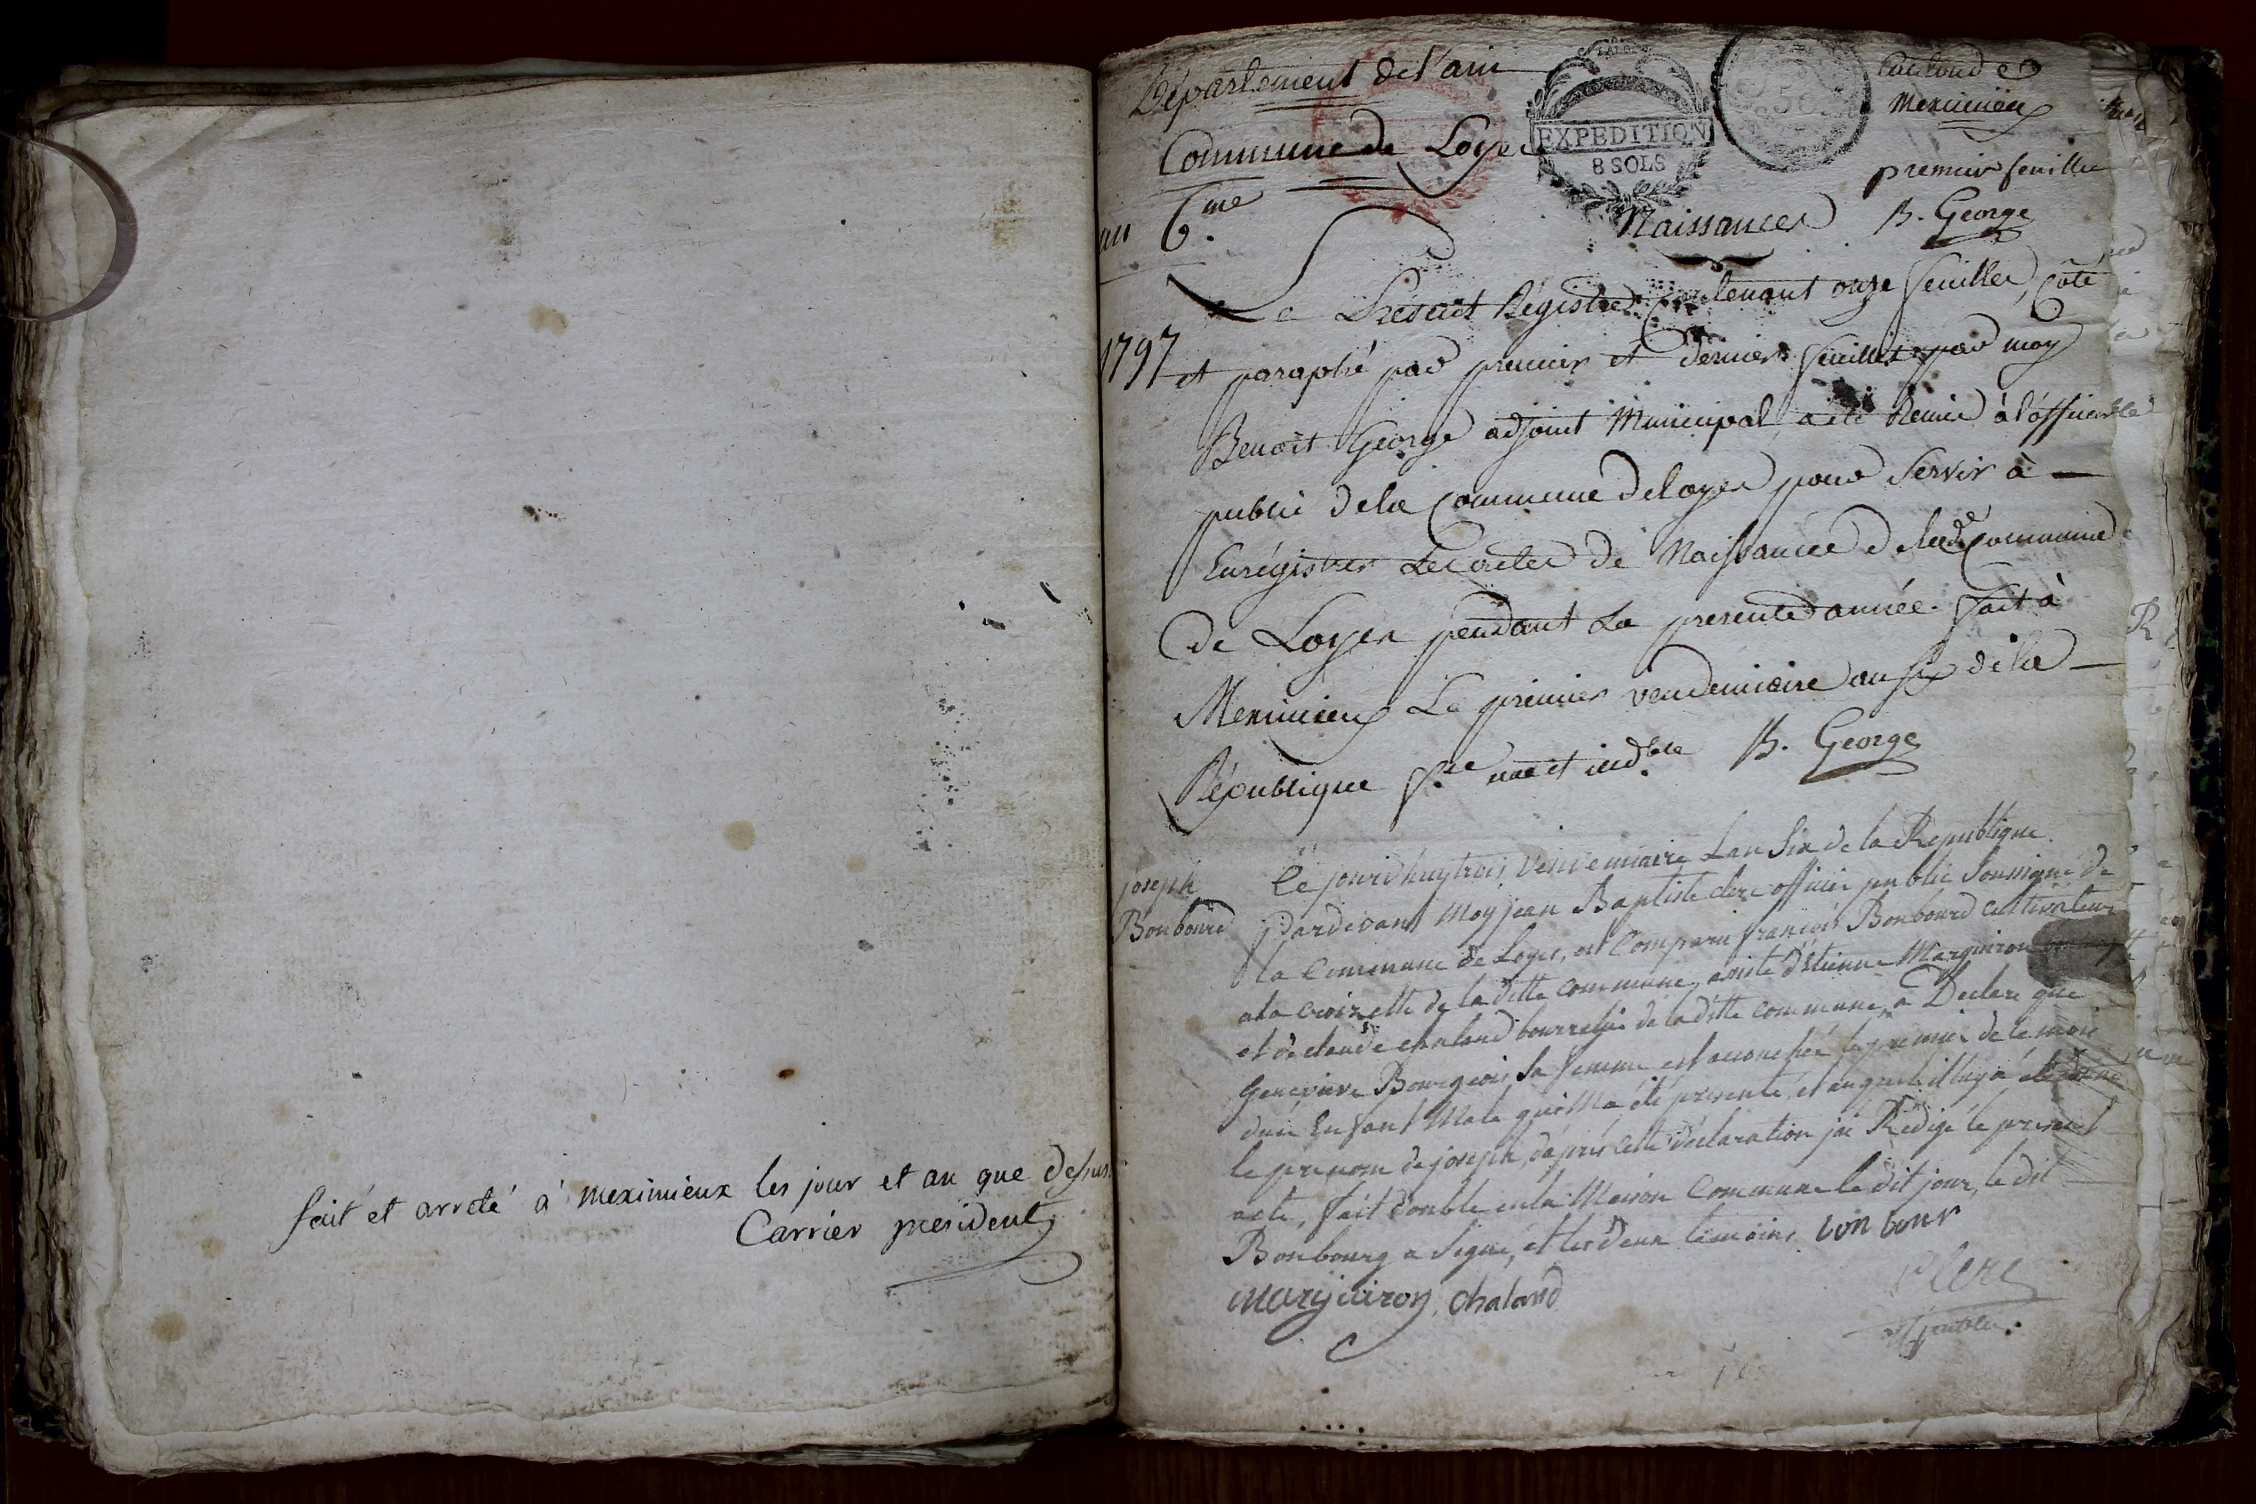 fait et arreté à meximieux les jour et an que dessus
Carrier président
Département de l'ain
Canton de
Meximieux
Commune de Loyes
EXPEDITION
8 SOLS
premier feuillet
an 6.me
Naissances
B. George
Le Présent Régistre Contenant onze feuilles, Côté
1797
et paraphé par premier et dernier feuillet par moy
Benoit George adjoint Municipal a eté Remis à l'officier
public de la Commune de Loyes pour Servir à —
Enrégistrer Les actes de Naissances de lad.e Commune
de Loyes pendant La presente année. fait à
Meximieux Le premier vendemiaire an six de la —
République f.se une et ind.ble B. George
joseph
Bonbourd
Ce jourd'huy trois Vendemiaire Lan Six de la Republique
Pardevant Moy jean Baptiste clerc officier public Soussigné de
la Commune de Loyes, est Comparu françois Bonbourd cultivateur
a la croizette de la ditte commune, assisté d'Etienne Marguiron
et de claude chaland bourrelier de la ditte commune, a Declaré que
Genevieve Bourgeois sa femme est accouchée le premier de ce mois
d'un Enfant Male qui M'a été présenté, et auquel il luy a été donné
le prenom de joseph, d'après cette déclaration jai Redigé le present
acte, fait double en la Maison Commune le dit jour, le dit
Bonbourg a Signé, et les deux temoins. bon bour
Marguiron, chaland
Clerc